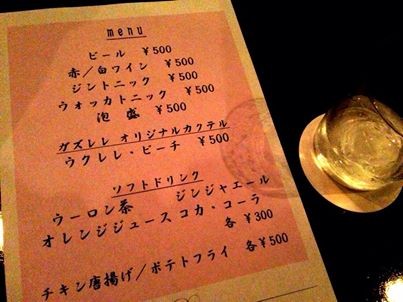 menu
ビール ￥500
赤／白ワイン ￥500
ジントニック ￥500
ウォッカトニック ￥500
泡盛 ￥500
ガズレレ オリジナルカクテル
ウクレレ・ピーチ ￥500
ソフトドリンク
ウーロン茶 ジンジャエール
オレンジジュース コカ・コーラ
各￥300
チキン唐揚げ／ポテトフライ 各￥500